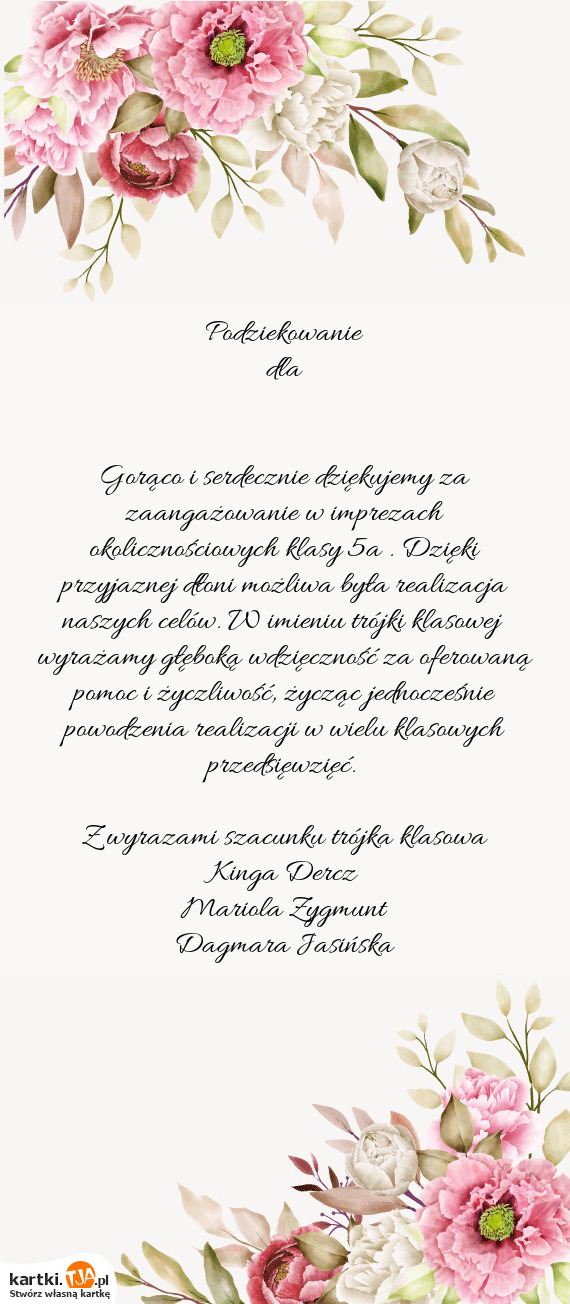 Podziekowanie
dla
Gorąco i serdecznie dziękujemy za
zaangażowanie w imprezach
okolicznościowych klasy 5a . Dzięki
przyjaznej dłoni możliwa była realizacja
naszych celów. W imieniu trójki klasowej
wyrażamy głęboką wdzięczność za oferowaną
pomoc i życzliwość, życząc jednocześnie
powodzenia realizacji w wielu klasowych
przedsięwzięć.
Z wyrazami szacunku trójka klasowa
Kinga Dercz
Mariola Zygmunt
Dagmara Jasińska
kartki.TJA.pl
Stwórz własną kartkę